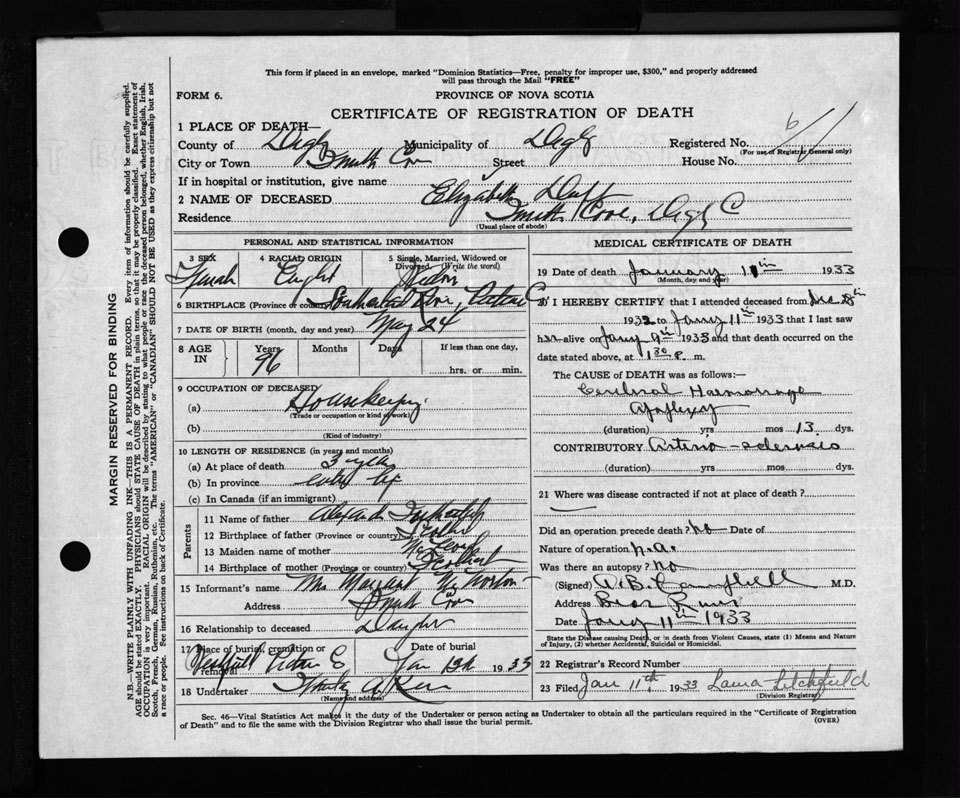 This form if placed in an envelope, marked "Dominion Statistics—Free, penalty for improper use, $300," and properly addressed
will pass through the Mail "FREE"
FORM 6.
PROVINCE OF NOVA SCOTIA
CERTIFICATE OF REGISTRATION OF DEATH
1 PLACE OF DEATH—
County of Digby Municipality of Digby Registered No.
(For use of Registrar General only)
City or Town Smith Cove Street House No.
If in hospital or institution, give name
2 NAME OF DECEASED Elizabeth
Residence Smith Cove, Digby C
(Usual place of abode)
PERSONAL AND STATISTICAL INFORMATION
3 SEX 4 RACIAL ORIGIN 5 Single, Married, Widowed or
Divorced (Write the word)
Female
6 BIRTHPLACE (Province or country)
7 DATE OF BIRTH (month, day and year) May 24
8 AGE IN Years Months Days If less than one day,
96 hrs. or min.
9 OCCUPATION OF DECEASED
(a) Housekeeping
(Trade or occupation or kind of work)
(b)
(Kind of industry)
10 LENGTH OF RESIDENCE (in years and months)
(a) At place of death 3
(b) In province
(c) In Canada (if an immigrant)
Parents
11 Name of father
12 Birthplace of father (Province or country)
13 Maiden name of mother McLeod
14 Birthplace of mother (Province or country)
15 Informant's name Mrs Margaret
Address Smith Cove
16 Relationship to deceased Daughter
17 Place of burial, cremation or removal Date of burial
Jan 13th 1933
18 Undertaker
(Name and address)
MEDICAL CERTIFICATE OF DEATH
19 Date of death January 11th 1933
(Month, day and year)
20 I HEREBY CERTIFY that I attended deceased from Dec
1932 to Jany 11th 1933 that I last saw
her alive on Jany 1933 and that death occurred on the
date stated above, at 1 30 P. m.
The CAUSE OF DEATH was as follows:—
Cerebral Haemorrage
Apoplexy
(duration) yrs mos 13 dys.
CONTRIBUTORY Arterio-sclerosis
(duration) yrs mos dys.
21 Where was disease contracted if not at place of death?
Did an operation precede death? No Date of
Nature of operation n.a.
Was there an autopsy? No
(Signed) A. B. Campbell M.D.
Address Bear River
Date Jany 11th 1933
State the Disease causing Death, or in death from Violent Causes, state (1) Means and Nature
of Injury, (2) whether Accidental, Suicidal or Homicidal.
22 Registrar's Record Number
23 Filed Jan 11th, 1933 Laura Litchfield
(Division Registrar)
Sec. 46—Vital Statistics Act makes it the duty of the Undertaker or person acting as Undertaker to obtain all the particulars required in the "Certificate of Registration
of Death" and to file the same with the Division Registrar who shall issue the burial permit. (OVER)
MARGIN RESERVED FOR BINDING
N.B.—WRITE PLAINLY WITH UNFADING INK—THIS IS A PERMANENT RECORD. Every item of information should be carefully supplied.
AGE should be stated EXACTLY. PHYSICIANS should STATE CAUSE OF DEATH in plain terms, so that it may be properly classified. Exact statement of
OCCUPATION is very important. RACIAL ORIGIN will be described by stating to what people or race the deceased person belonged, whether English, Irish,
Scotch, French, German, Russian, Ruthenian, etc. The terms "AMERICAN" or "CANADIAN" SHOULD NOT BE USED as they express citizenship but not
a race or people. See instructions on back of Certificate.